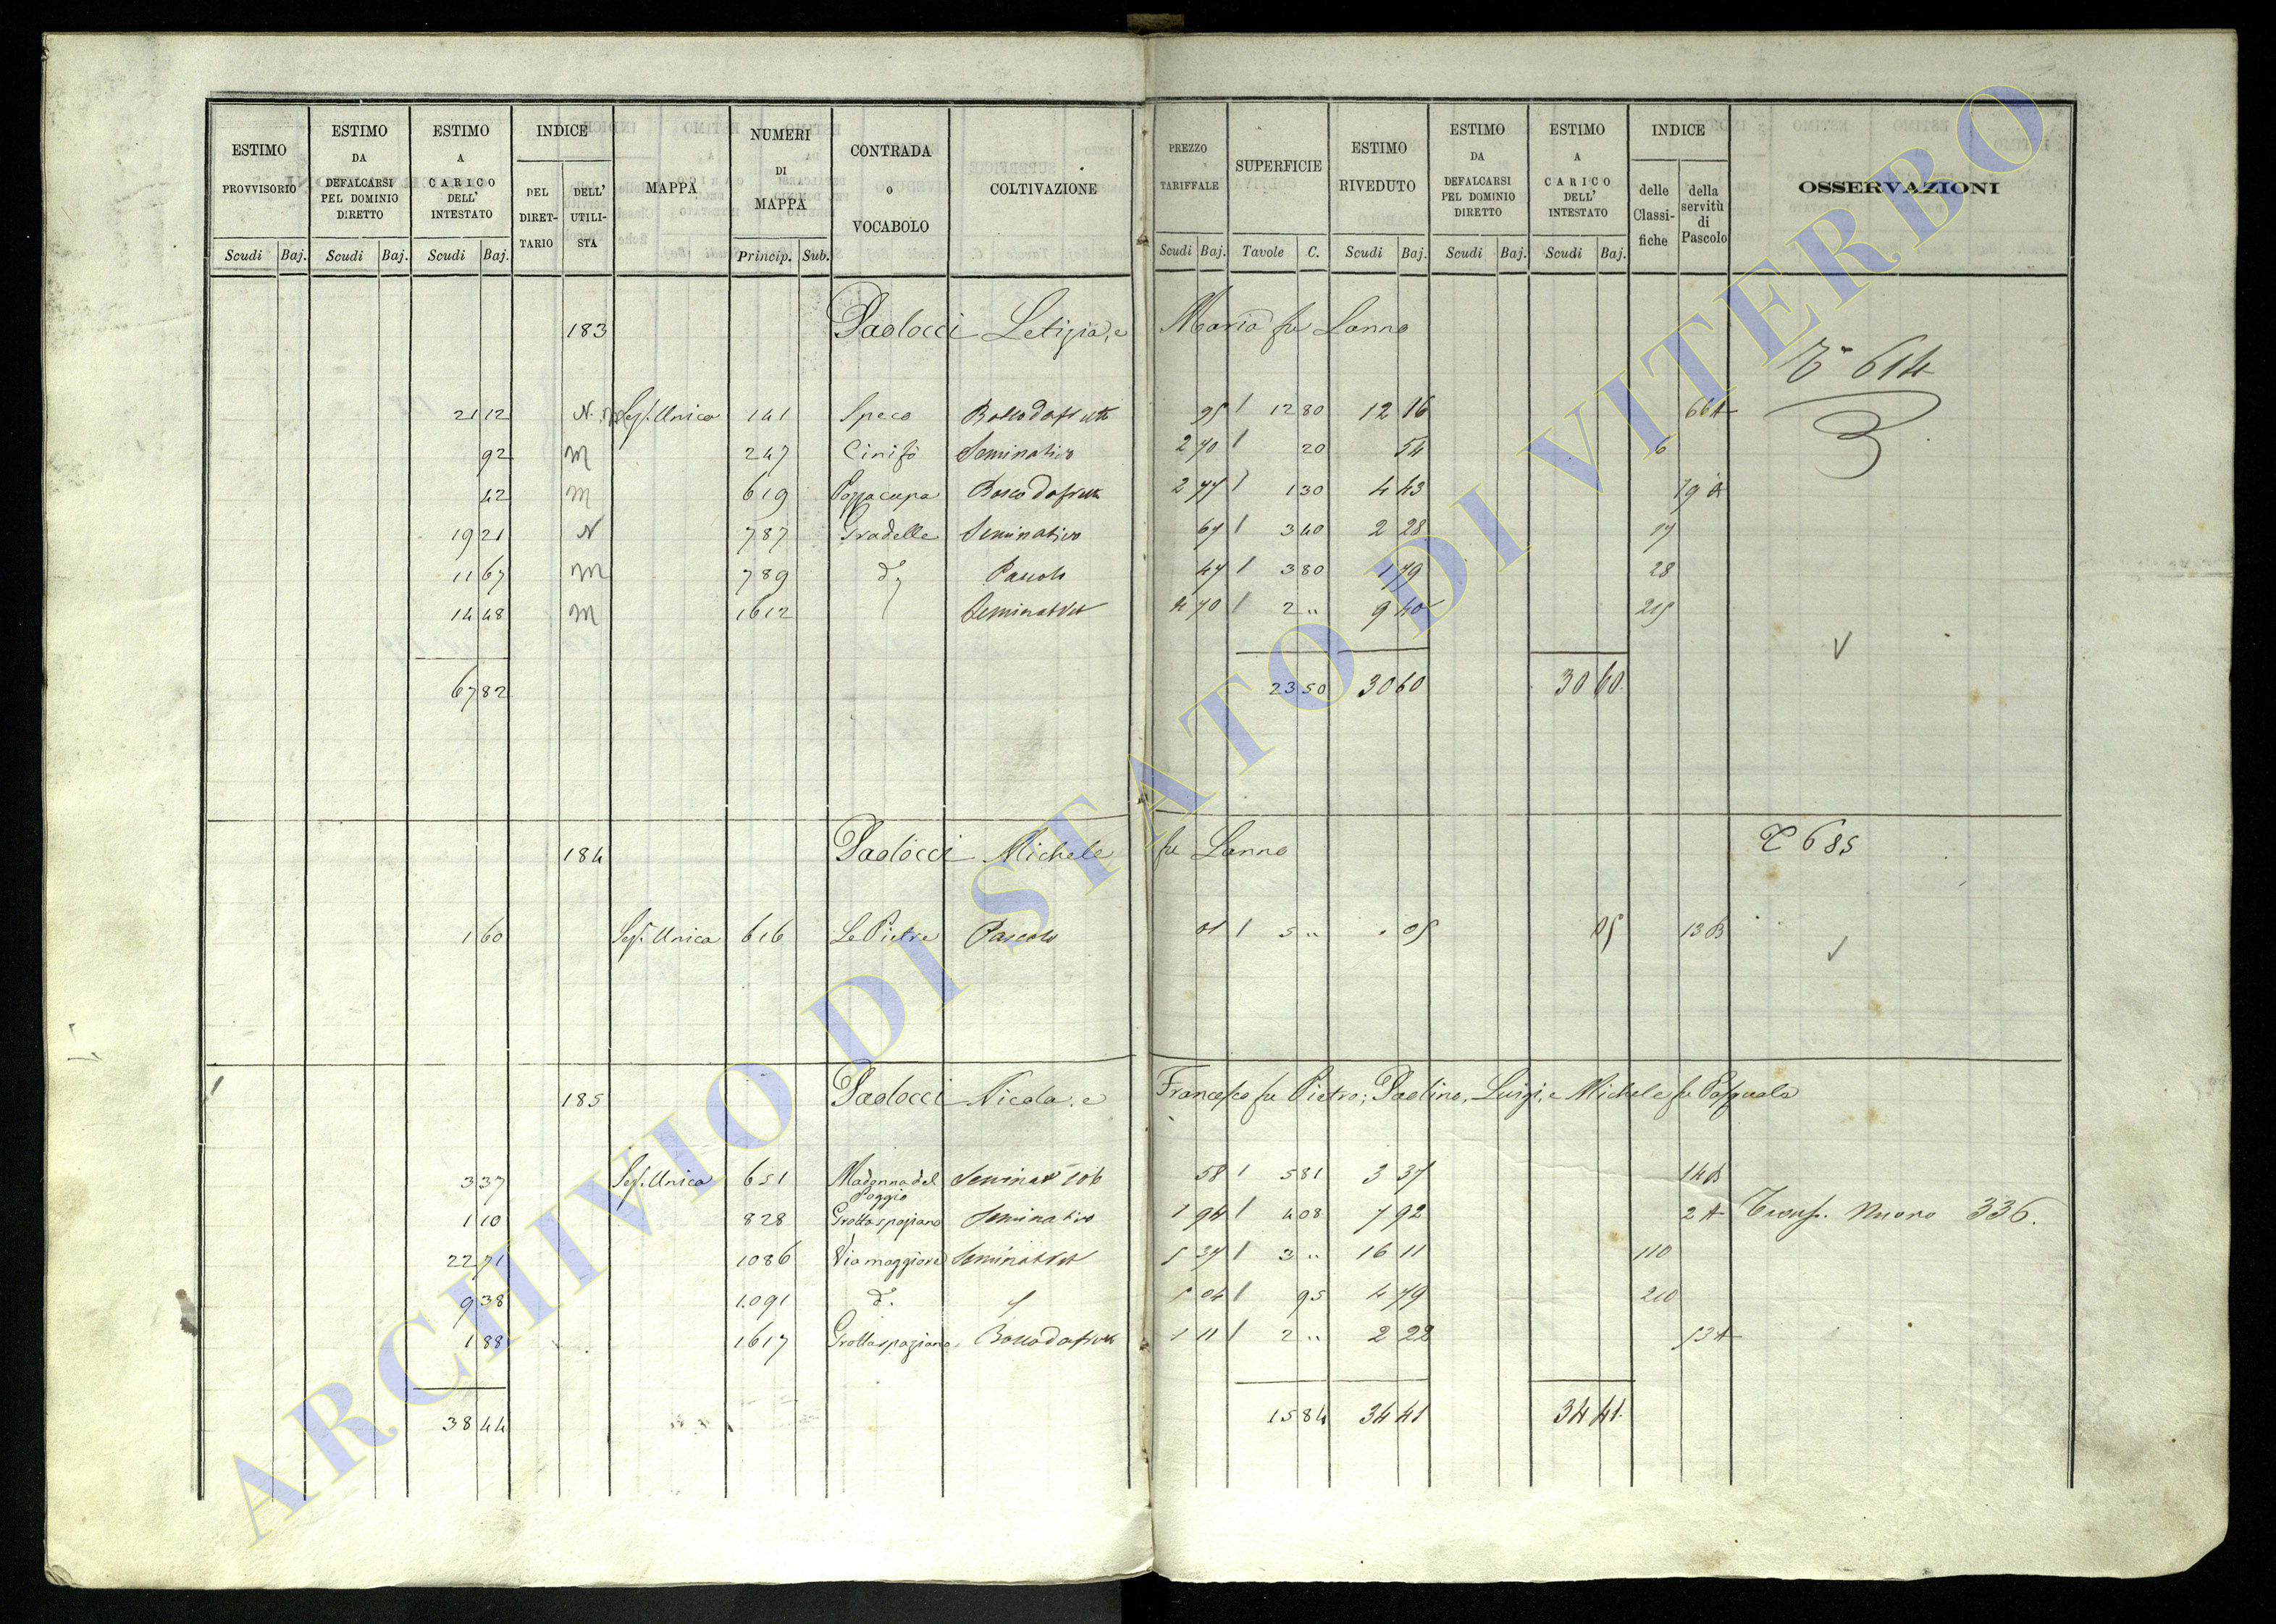 ESTIMO PROVVISORIO | ESTIMO DA DEFALCARSI PEL DOMINIO DIRETTO | ESTIMO A CARICO DELL' INTESTATO | INDICE DEL DIRET-TARIO | DELL' UTILI-STA | MAPPA | NUMERI DI MAPPA | CONTRADA O VOCABOLO | COLTIVAZIONE | PREZZO TARIFFALE | SUPERFICIE | ESTIMO RIVEDUTO | ESTIMO DA DEFALCARSI PEL DOMINIO DIRETTO | ESTIMO A CARICO DELL' INTESTATO | INDICE delle Classi-fiche | della servitù di Pascolo | OSSERVAZIONI
Scudi Baj. | Scudi Baj. | Scudi Baj. | Princip. Sub. | Scudi Baj. | Tavole C. | Scudi Baj. | Scudi Baj. | Scudi Baj.
183 Paolocci Letizia, e Maria fu Lanno
614
21 12 N. Sez. Unica 141 Speco 95 / 12 80 12 16 66 A
92 m 247 Cinifò Seminativo 2 70 / 20 54 6
42 m 619 2 77 / 1 30 4 43 19 A
19 21 N 787 Gradelle Seminativo 67 / 3 40 2 28 17
11 67 m 789 d° Pascolo 47 / 3 80 1 79 28
14 48 m 1612 4 70 / 2 " 9 40 215
67 82 23 50 30 60 30 60
184 Paolocci Michele fu Lanno 685
1 60 Sez. Unica 616 Le Pietre Pascolo 01 / 5 " 05 05 13 B
185 Paolocci Nicola, e Francesco fu Pietro; Paolino, Luigi, e Michele fu Pasquale
3 37 Sez. Unica 651 Madonna del Poggio 58 / 5 81 3 37 14 B
1 10 828 Grottaspaziano Seminativo 1 94 / 4 08 7 92 2 A Trasp. Nuovo 336.
22 71 1086 Via maggiore 5 37 / 3 " 16 11 110
9 38 1091 d°. 5 04 / 95 4 79 210
1 88 1617 Grottaspaziano 1 11 / 2 " 2 22 13 A
38 44 15 84 34 41 34 41
ARCHIVIO DI STATO DI VITERBO